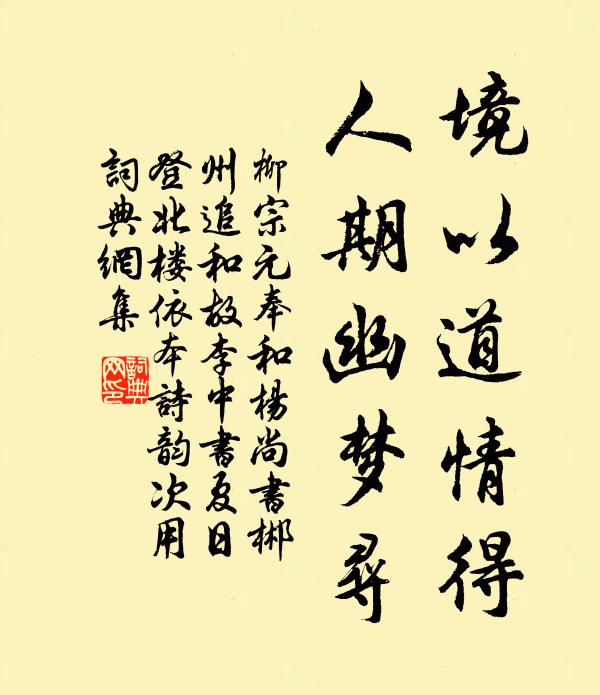 境以道情得
人期幽梦尋
柳宗元奉和楊尚書郴
州追和故李中書夏日
登北楼依本詩韵次用
詞典網集
詞典
网印